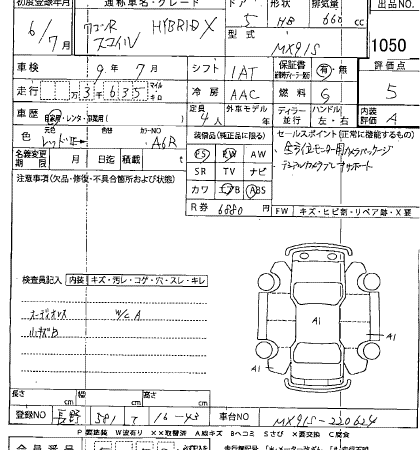 初度登録年月 通称車名・グレード ドア 形状 排気量 出品NO.
6/7月 ワゴンR スマイル HYBRID X 5 HB 660 cc
型式 MX91S 1050
車検 9年 7月 シフト 1AT 保証書 有・無 評価点
走行 万 3千 635 マイル キロ 冷房 AAC 燃料 G 5
車歴 自家用・レンタ・事業用( ) 定員 4人 外車モデル ディーラー 並行 ハンドル 左・右 内装評価 A
色 元色 レッド カラーNO A6R 装備品(純正品に限る) セールスポイント(正常に機能するもの)
名義変更期限 月 日迄 積載 t PS PW AW 全方位モニター用カメラパッケージ
SR TV ナビ デュアルカメラブレーキサポート
注意事項(欠品・修復・不具合箇所および状態)
カワ エアB ABS
R券 6880 円 FW キズ・ヒビ割・リペア跡・X要
検査員記入 内装 キズ・汚レ・コゲ・穴・スレ・キレ
オーディオレス W/C A
小キズ有
A1
A1
A1
長さ cm 幅 cm 高さ cm
登録NO 長野 581 て 16-43 車台NO MX91S-220624
P要塗装 W波有り XX取替済 A線キズ Bヘコミ Sさび X要交換 C腐食
会員番号